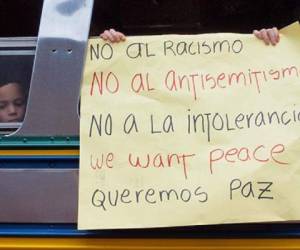 No al Racismo
No al antisemitism
No a la intolerancia
we want peace
Queremos Paz